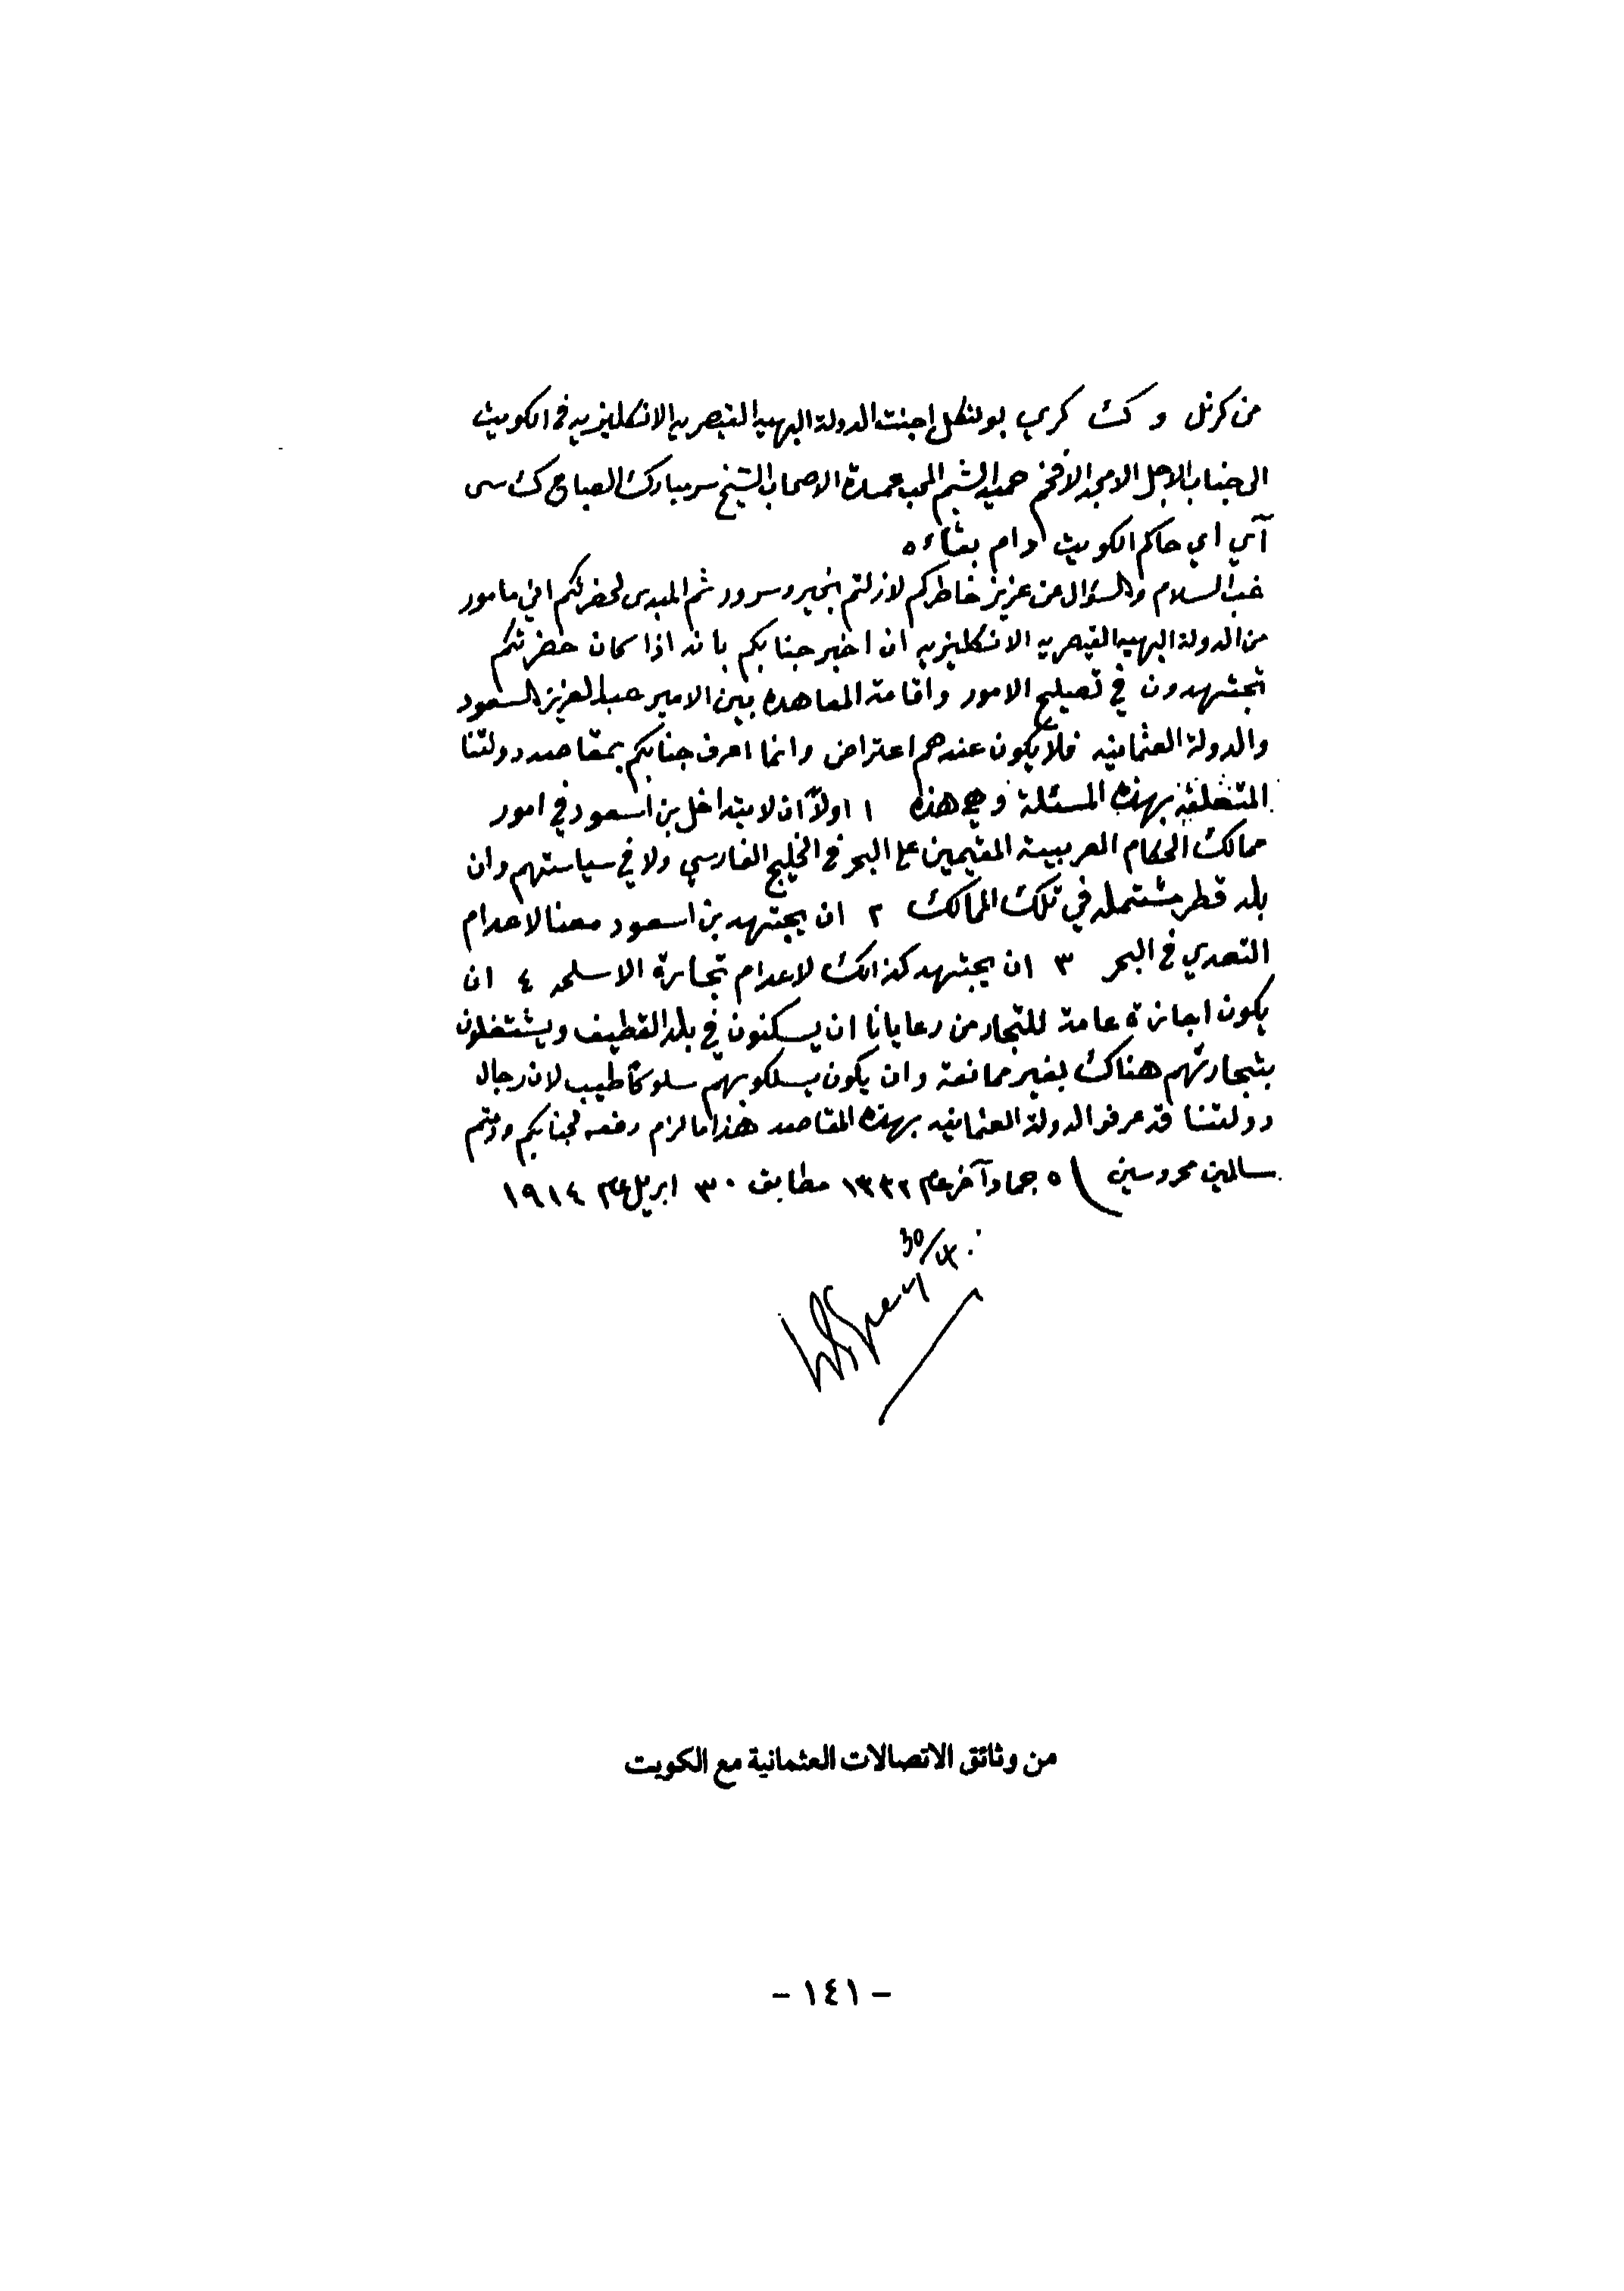 من كرنل و ك كري بولتكل اجنت الدولة البهيه القيصريه الانكليزيه في الكويت
الى جناب الاجل الامجد الافخم حميد الشيم المحب عمدة الاصحاب الشيخ سر مبارك الصباح ك سى
آي اي حاكم الكويت دام بقاءه
غب السلام والسؤال عن عزيز خاطركم لازلتم بخير وسرور ثم المبدى لحضرتكم اني مامور
من الدولة البهيه القيصريه الانكليزيه ان اخبر جنابكم بانه اذا كان حضرتكم
تجتهدون في تصليح الامور واقامة المعاهده بين الامير عبد العزيز السعود
والدولة العثمانيه فلا يكون عندهم اعتراض وانما اعرف جنابكم بمقاصد دولتنا
المتعلقة بهذه المسئلة وهي هذه ١ اولاً ان لا يتداخل بن اسعود في امور
ممالك الحكام العربية المقيمين على البحر في الخليج الفارسي ولا في سياستهم وان
بلد قطر مشتمله في تلك الممالك ٢ ان يجتهد بن اسعود معنا لاعدام
التعدي في البحر ٣ ان يجتهد كذالك لاعدام تجارة الاسلحه ٤ ان
يكون اجازة عامة للتجار من رعايانا ان يسكنون في بلد القطيف ويشتغلون
بتجارتهم هناك بغير ممانعة وان يكون يسلكو بهم سلوكاً طيب لان رجال
دولتنا قد عرفو الدولة العثمانيه بهذه المقاصد هذا ما لزم رفعه لجنابكم ودمتم
سالمين محروسين ٥ جماد آخر عام ١٣٣٢ مطابق ٣٠ ابريل عام ١٩١٤
30/4
WGrey
من وثائق الاتصالات العثمانية مع الكويت
- ١٤١ -